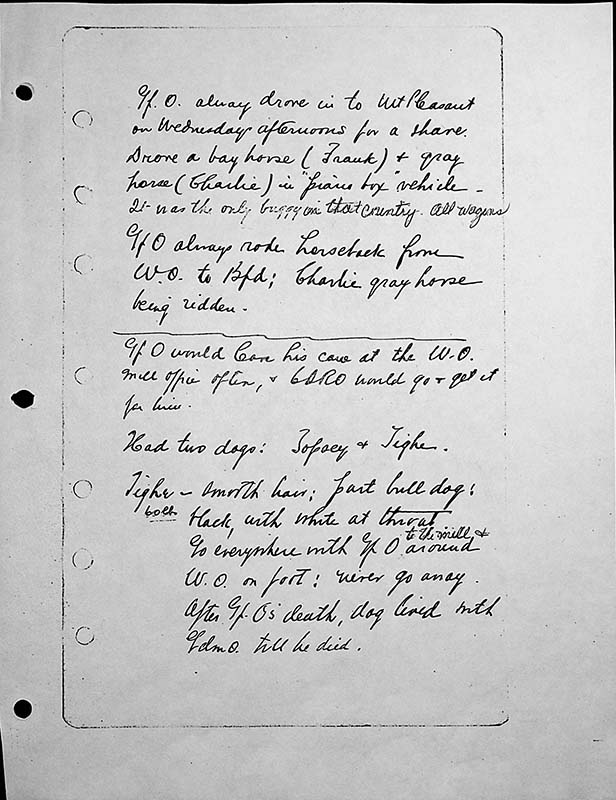 Gf. O. alway drove in to Mt Pleasant
on Wednesdays afternoons for a shave.
Drove a bay horse (Frank) + gray
horse (Charlie) in "piano box" vehicle -
It was the only buggy in that country. All wagons
Gf O always rode horseback from
W.O. to Bfd; Charlie gray horse
being ridden.
Gf O would leave his cane at the W.O.
mill office often, + would go + get it
for him.
Had two dogs: Topsey & Tighe.
Tighe - smooth hair; part bull dog;
both
black, with white at throat
to the mill, &
Go everywhere with Gf O around
W.O. on foot; never go away.
After Gf. O's death, dog lived with
till he died.